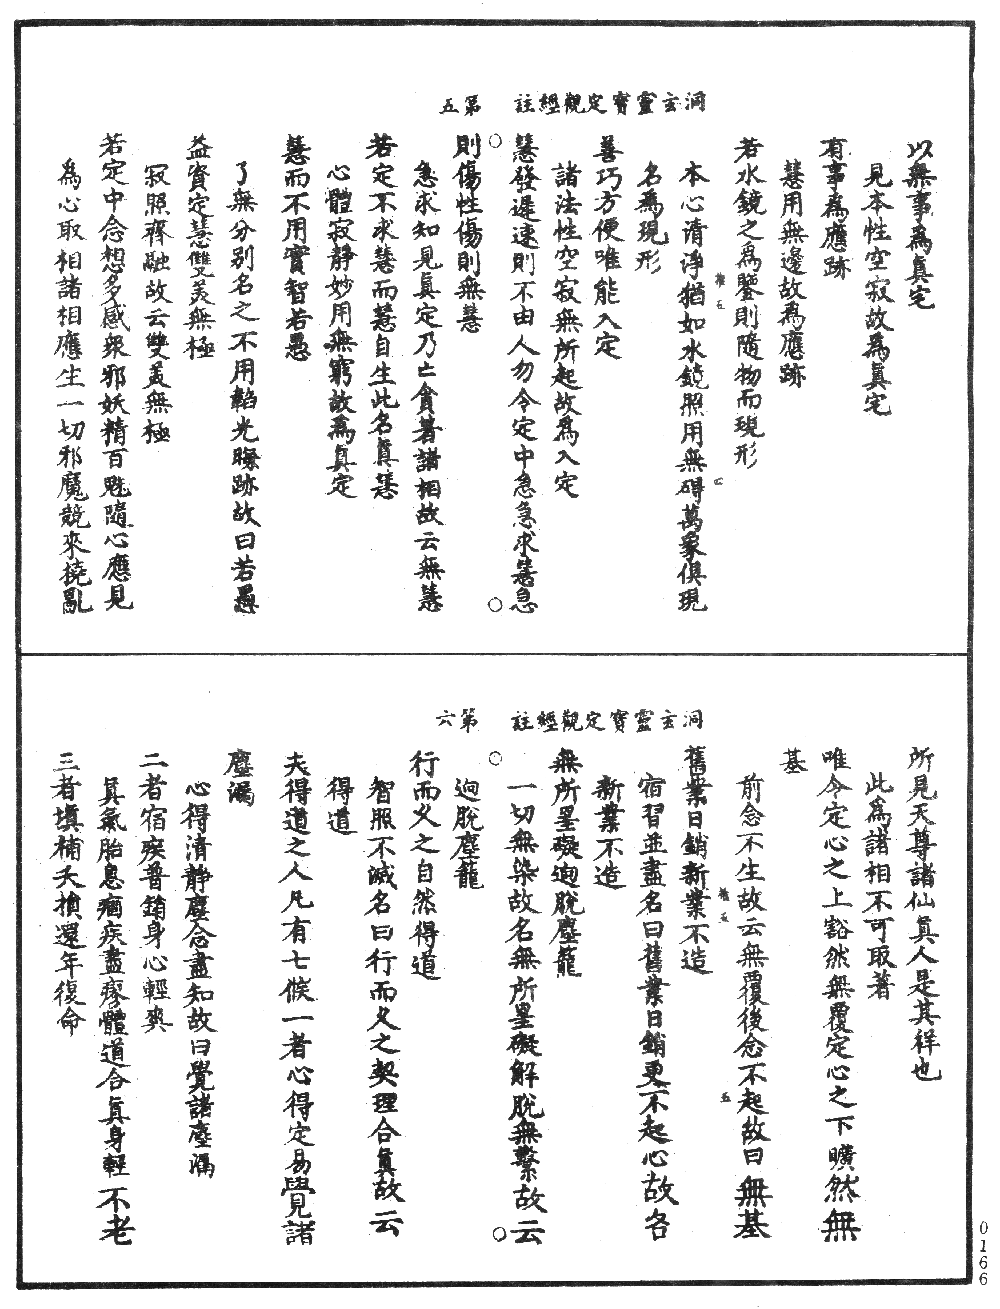 洞玄靈寶定觀經註　第五
以無事為真宅
見本性空寂故為真宅
有事為應跡
慧用無邊故為應跡
若水鏡之為鑒則隨物而現形
本心清淨猶如水鏡照用無碍萬象俱現
名為現形
善巧方便唯能入定
諸法性空寂無所起故為入定
慧發遲速則不由人勿令定中急急求慧急
則傷性傷則無慧
急求知見真定乃亡貪著諸相故云無慧
若定不求慧而慧自生此名真慧
心體寂靜妙用無窮故為真定
慧而不用實智若愚
了無分別名之不用韜光晦跡故曰若愚
益資定慧雙美無極
寂照齊融故云雙美無極
若定中念想多感眾邪妖精百魅隨心應見
為心取相諸相應生一切邪魔競來撓亂
洞玄靈寶定觀經註　第六
所見天尊諸仙真人是其祥也
此為諸相不可取著
唯令定心之上豁然無覆定心之下曠然無
基
前念不生故云無覆後念不起故曰無基
舊業日銷新業不造
宿習並盡名曰舊業日銷更不起心故名
新業不造
無所罣礙迥脫塵籠
一切無染故名無所罣礙解脫無繫故云
迥脫塵籠
行而久之自然得道
智照不滅名曰行而久之契理合真故云
得道
夫得道之人凡有七候一者心得定易覺諸
塵漏
心得清靜塵念盡知故曰覺諸塵漏
二者宿疾普銷身心輕爽
真氣胎息痼疾盡瘳體道合真身輕不老
三者填補夭損還年復命
0166